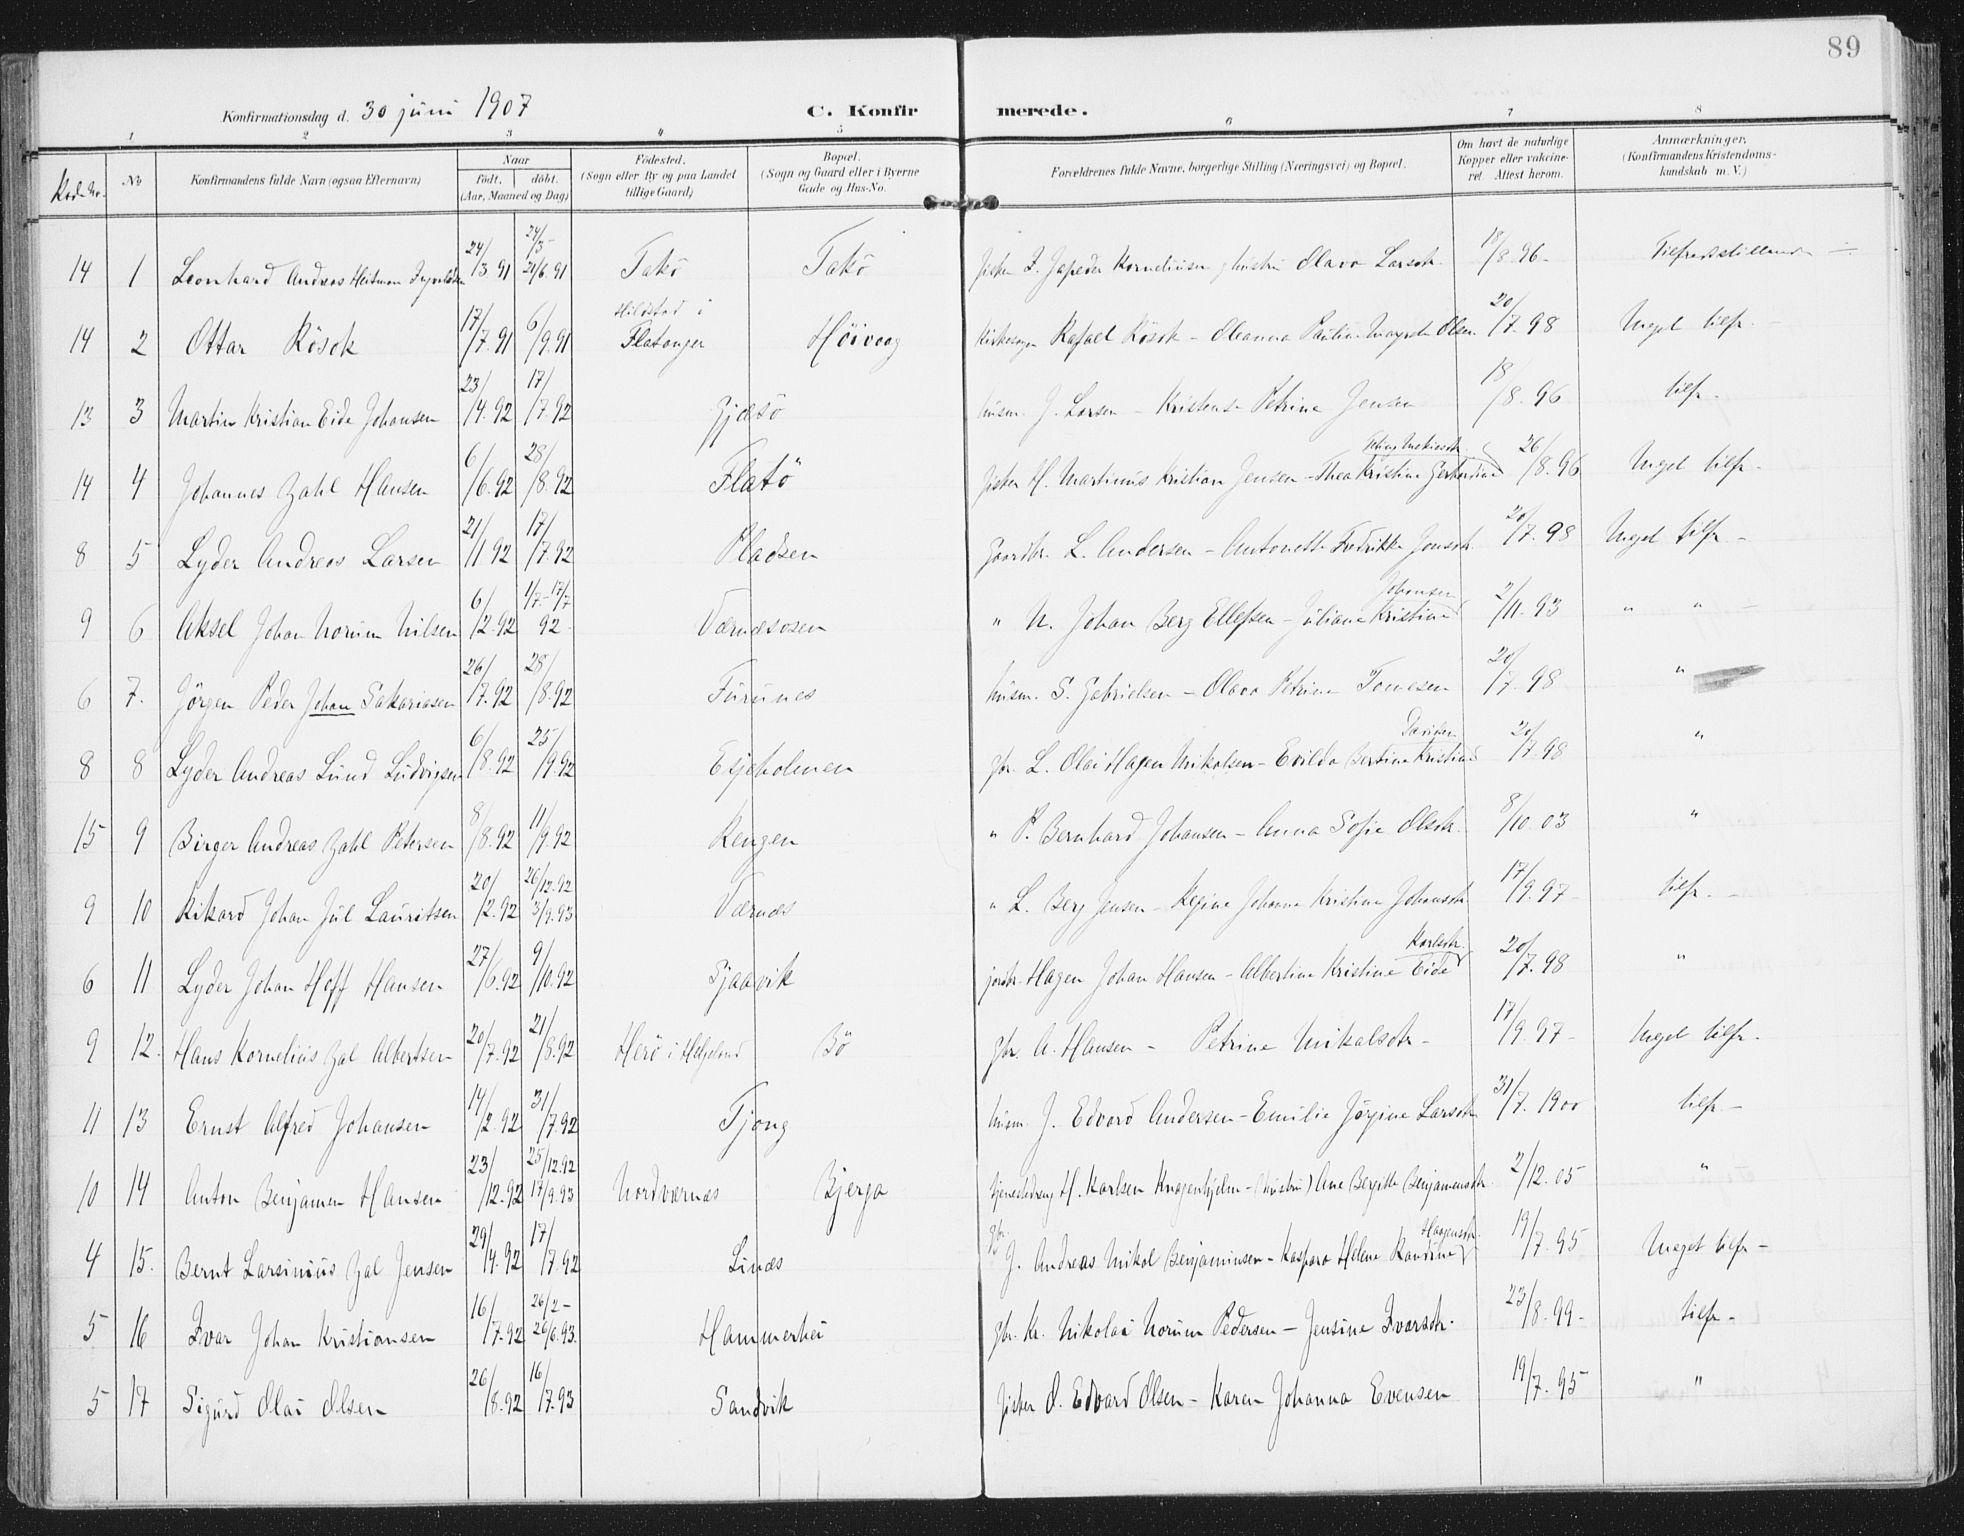 89
Konfirmationsdag d. 30 juni 1907 C. Konfirmerede.
1 2 3 4 5 6 7 8
No Konfirmandens fulde Navn (ogsaa Efternavn) Naar født, døbt. (Aar, Maaned og Dag) Fødested. (Sogn eller By og paa Landet tillige Gaard) Bopæl. (Sogn og Gaard eller i Byerne Gade og Hus-No. Forældrenes fulde Navne, borgerlige Stilling (Næringsvei) og Bopæl. Om havt de naturlige Kopper eller vakcineret. Attest herom. Anmærkninger. (Konfirmandens Kristendomskundskab m. V.)
14 1 Leonhard Andreas Heitman 24/3 91 24/3- 24/6 91 Takö Takö Fisker Kornelius Olava Larsdtr. 18/8. 96- Tilfredsstillende
14 2 Ottar Rösok 17/7. 91 6/9. 91 Hildstad i Flatanger Höivaag Kirkesanger Rafael Rösok - Oleanna Pauline Olsen 20/7. 98 Meget tilfr.
13 3 Martin Kristian Eide Johansen 23/4. 92 17/7. 92 Gjæsö husm. J. Larsen - Kristense Petrine Jensen 18/8. 96 tilfr.
14 4 Johannes Zahl Hansen 6/6. 92 28/8. 92 Flatö Fisker H. Martinus Kristian Jensen - Thea Kristine 26/8. 96 Meget tilfr.
8 5 Lyder Andreas Larsen 21/1 92 17/7. 92 Pladsen Gaardbr. L. Andersen - Antonette Fredrikke Jonsdtr. 20/7. 98 Meget tilfr -
9 6 Aksel Johan Norum Nilsen 6/2. 92 1/7 - 17/7 92 Værnæsosen " N. Johan Berg Ellefsen - Juliane Kristine Johansen 2/11. 93 " " -
6 7. Jörgen Peder Johan Sakariasen 26/7. 92 28/8. 92 Furunes husm. S. Gabrielsen - Olava Petrine Tomesen 20/7. 98 "
8 8 Lyder Andreas Lund Ludvigsen 6/8. 92 25/9. 92 Esjeholmen gbr. L. Olai Hagen Mikalsen - Evilda Bertine Kristine 20/7. 98 "
15 9 Birger Andreas Zahl Petersen 8/8. 92 11/9. 92 Rengen " P. Bernhard Johansen - Anna Sofie Olsdtr. 8/10. 03 "
9 10 Rikard Johan Jul Lauritsen 20/2. 92 26/12. 92 3/9. 93 Værnæs " L. Berg Jensen - Regine Johanna Kristine Johansdtr 17/9. 97 - tilfr. -
6 11 Lyder Johan Hoff Hansen 27/6. 92 9/10. 92 Sjaavik Hagen Johan Hansen - Albertine Kristine Eide Karlsdtr. 20/7. 98 "
9 12. Hans Kornelius Zal Albertsen 20/7. 92 21/8. 92 Herö i Helgeland Bö gbr. A. Hansen - Petrine Mikalsdtr - 17/9. 97 - Meget tilfr.
11 13 Ernst Alfred Johansen 14/2. 92 31/7. 92 Tjong husm. J. Edvard Andersen - Emilie Jörgine Larsdtr 31/7. 1900 tilfr. -
10 14 Anton Benjamen Hansen 23/12. 92 25/12. 92 17/9. 93 Nordværnæs Bjerga Tjenestedreng H. Karlsen Knagenhjelm - (hustru) Ane Bergitte Benjamensdtr. 2/12. 05 "
4 15. Bernt Larsinius Zal Jensen 29/4. 92 17/7. 92 Linæs Gbr. J. Andreas Mikal Benjaminsen - Kaspara Helene Randine Haagensdtr. 19/7. 95 Meget tilfr -
5 16 Ivar Johan Kristiansen 16/7. 92 26/2 - 26/6. 93. Hammerhei gbr. Kr. Nikolai Norum Pedersen - Jensine Ivarsdtr. 23/8. 99- tilfr -
5 17 Sigurd Olai Olsen 26/8. 92 16/7. 93 Sandvik Fisker O. Edvard Olsen - Karen Johanna Evensen 19/7. 95 "